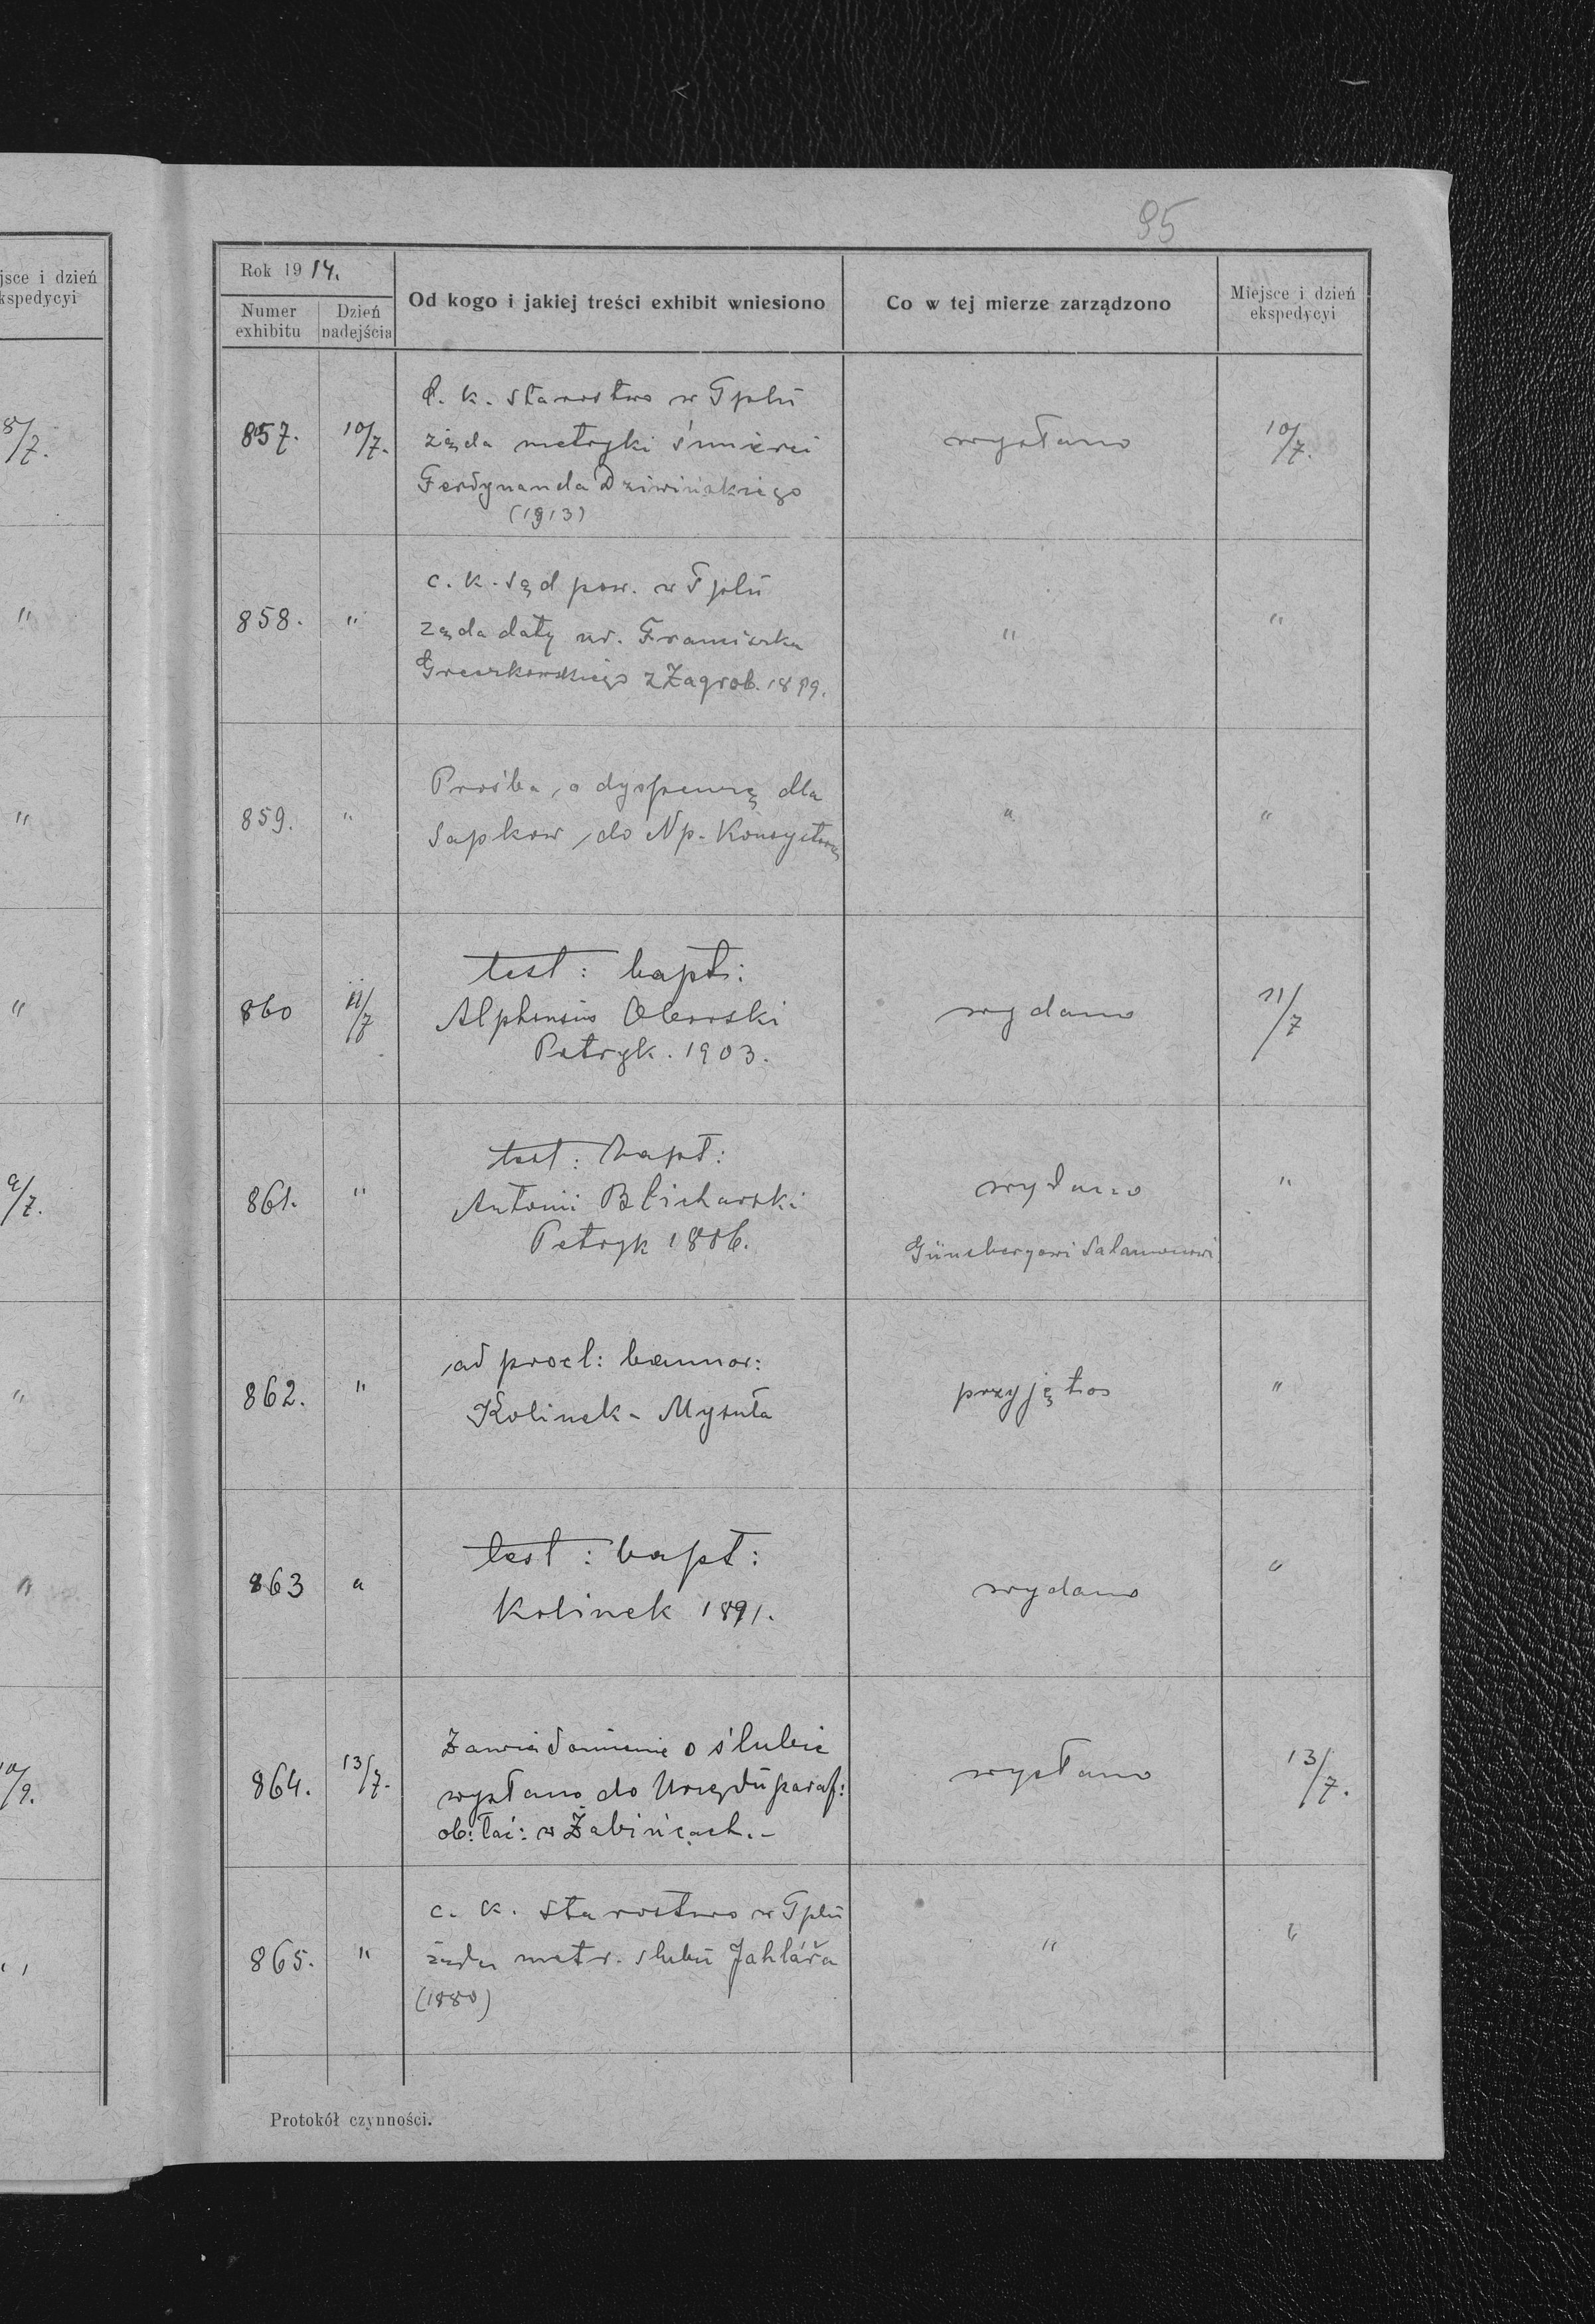 95
jsce i dzień
kspedycyi
8/7.
"
"
"
9/7.
"
"
10/9.
"
Rok 1914.
Numer exhibitu
Dzień nadejścia
Od kogo i jakiej treści exhibit wniesiono
Co w tej mierze zarządzono
Miejsce i dzień ekspedycyi
857. 10/7. c. k. starostwo w Tplu wysłano 10/7.
żąda metryki śmierci
Ferdynanda Dziwińskiego
(1913)
858. " c. k. Sąd pow. w Tplu " "
żąda daty ur. Franciszka
z Zagrob. 1899.
859. " Prośba o dyspensę dla " "
Sapkow do Np. Konsystorza
860 11/7. test: bapt: wydano 11/7
Alphonsus Oberski
Petryk. 1903.
861. " test: bapt: wydano "
Antonii Blicharski
Petryk 1886.
Günsbergowi Salamonowi
862. " ad procl: bannor: przyjęto "
Kolinek - Mysuła
863 " test: bapt: wydano "
Kolinek 1891.
864. 13/7. Zawiadomienie o ślubie wysłano 13/7.
wysłano do Urzędu paraf:
ob: łać: w Żabińcach.-
865. " c. k. starostwo w Tplu " "
żąda metr. slubu Jahlářa
(1880)
Protokół czynności.